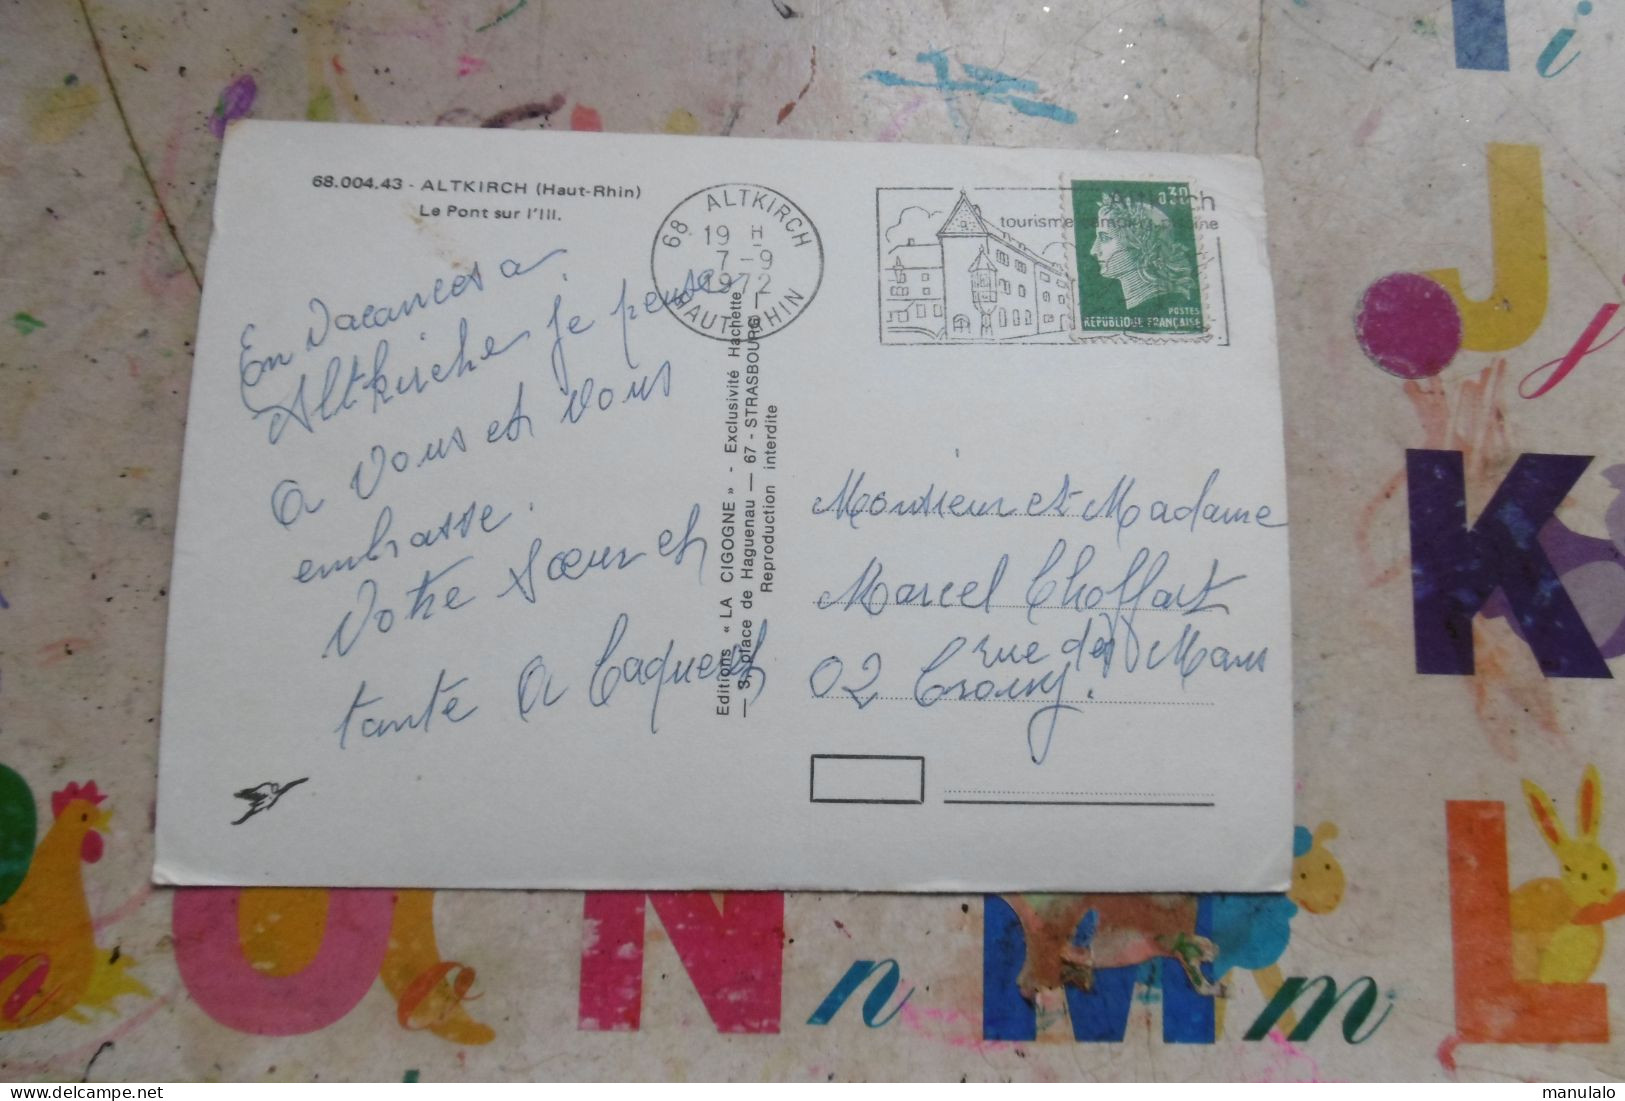 68.004.43 - ALTKIRCH (Haut-Rhin)
Le Pont sur l'Ill.
En Vacances a
Altkirche Je pense
a Vous et vous
embrasse.
Votre Sœur et
tante A
68 ALTKIRCH
19 H
7 - 9
1972
HAUT-RHIN
Altkirch
tourisme
0,30
POSTES
REPUBLIQUE FRANÇAISE
Editions « LA CIGOGNE » - Exclusivité Hachette
— 3, place de Haguenau — 67 - STRASBOURG —
Reproduction interdite
Monsieur et Madame
Marcel Choffart
rue des Mans
02 Crouy.
i
J
j
K
L
O
o
N
n
M
m
manulalo